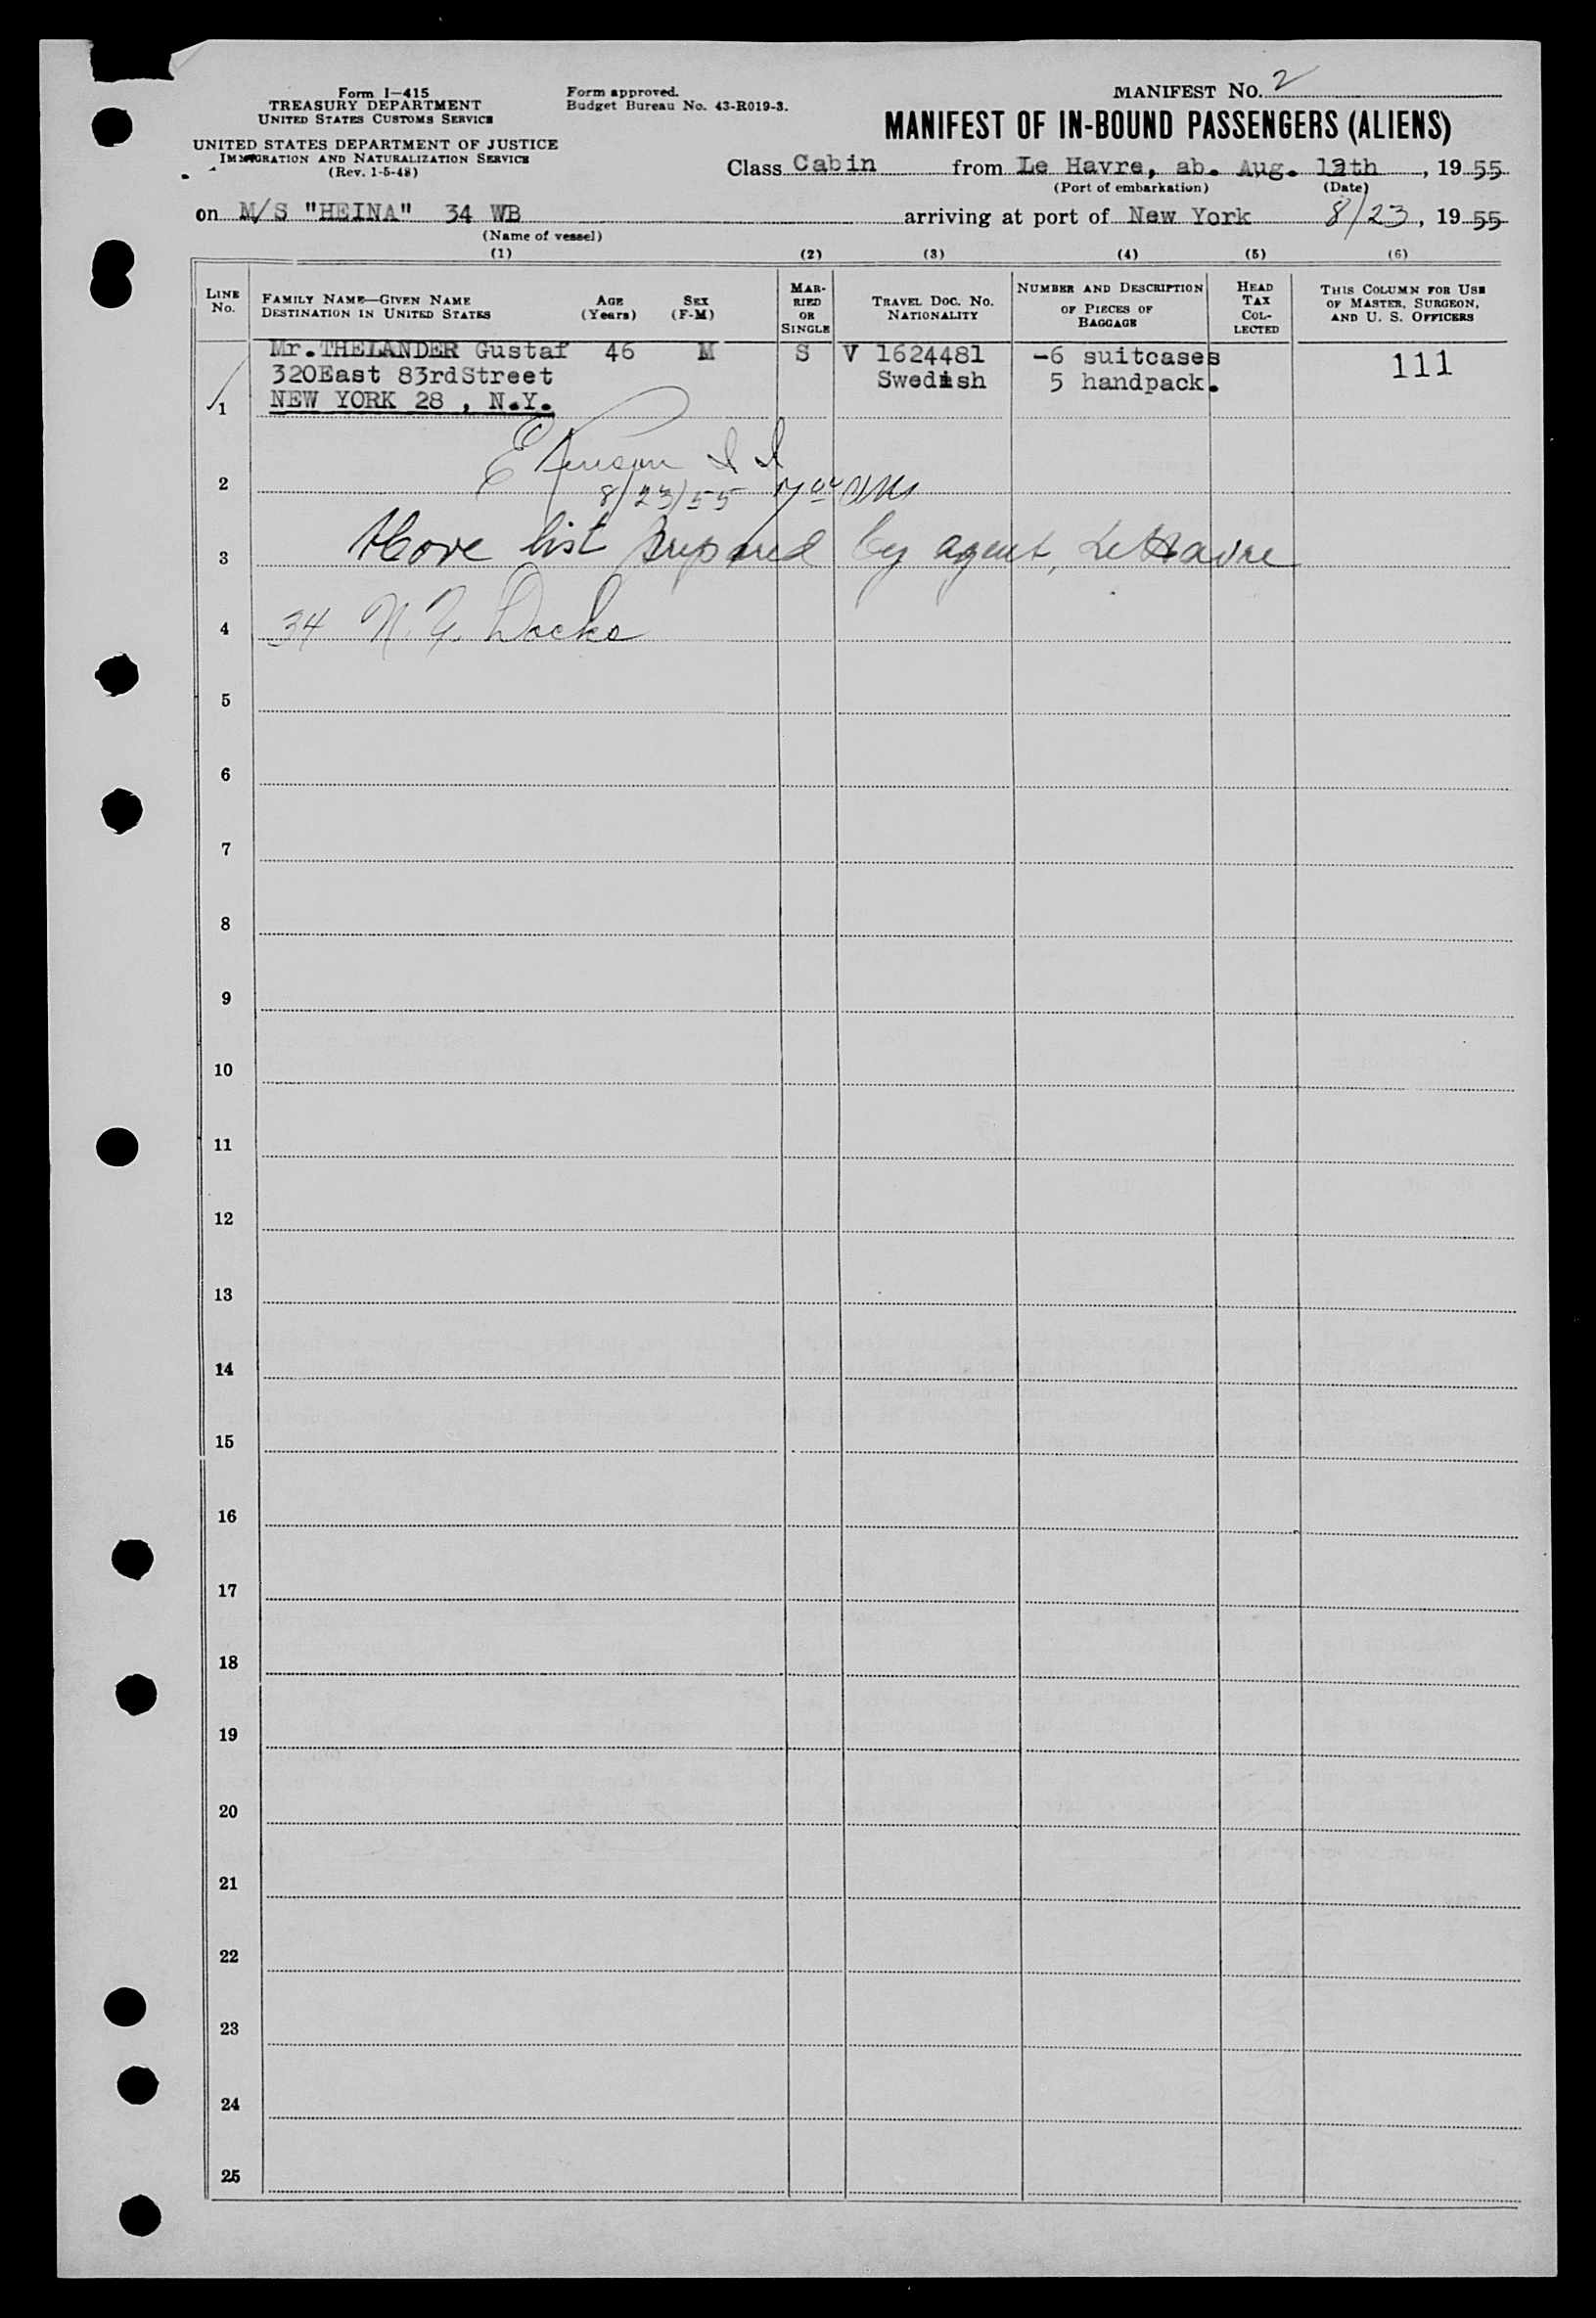 MANIFEST No. 2
Form I-415
TREASURY DEPARTMENT
UNITED STATES CUSTOMS SERVICE
UNITED STATES DEPARTMENT OF JUSTICE
IMMIGRATION AND NATURALIZATION SERVICE
(Rev. 1-5-48)
Form approved.
Budget Bureau No. 43-R019-3.
MANIFEST OF IN-BOUND PASSENGERS (ALIENS)
Class Cabin from Le Havre, ab. Aug. th, 19 55
(Port of embarkation) (Date)
on M/S "HEINA" 34 WB arriving at port of New York 8/23, 19 55
(Name of vessel)
(1) (2) (3) (4) (5) (6)
LINE No.
FAMILY NAME—GIVEN NAME
DESTINATION IN UNITED STATES
AGE (Years)
SEX (F-M)
MARRIED OR SINGLE
TRAVEL DOC. No.
NATIONALITY
NUMBER AND DESCRIPTION
OF PIECES OF
BAGGAGE
HEAD
TAX
COL-
LECTED
THIS COLUMN FOR USE
OF MASTER, SURGEON,
AND U. S. OFFICERS
Mr.THELANDER Gustaf 46 M S V 1624481 -6 suitcases 111
320East 83rdStreet Swedish 5 handpack.
1 NEW YORK 28 , N.Y.
2
8/23/55
3 Above list prepared by agent, Le Havre
4 34 N.Y. Docks
5
6
7
8
9
10
11
12
13
14
15
16
17
18
19
20
21
22
23
24
25